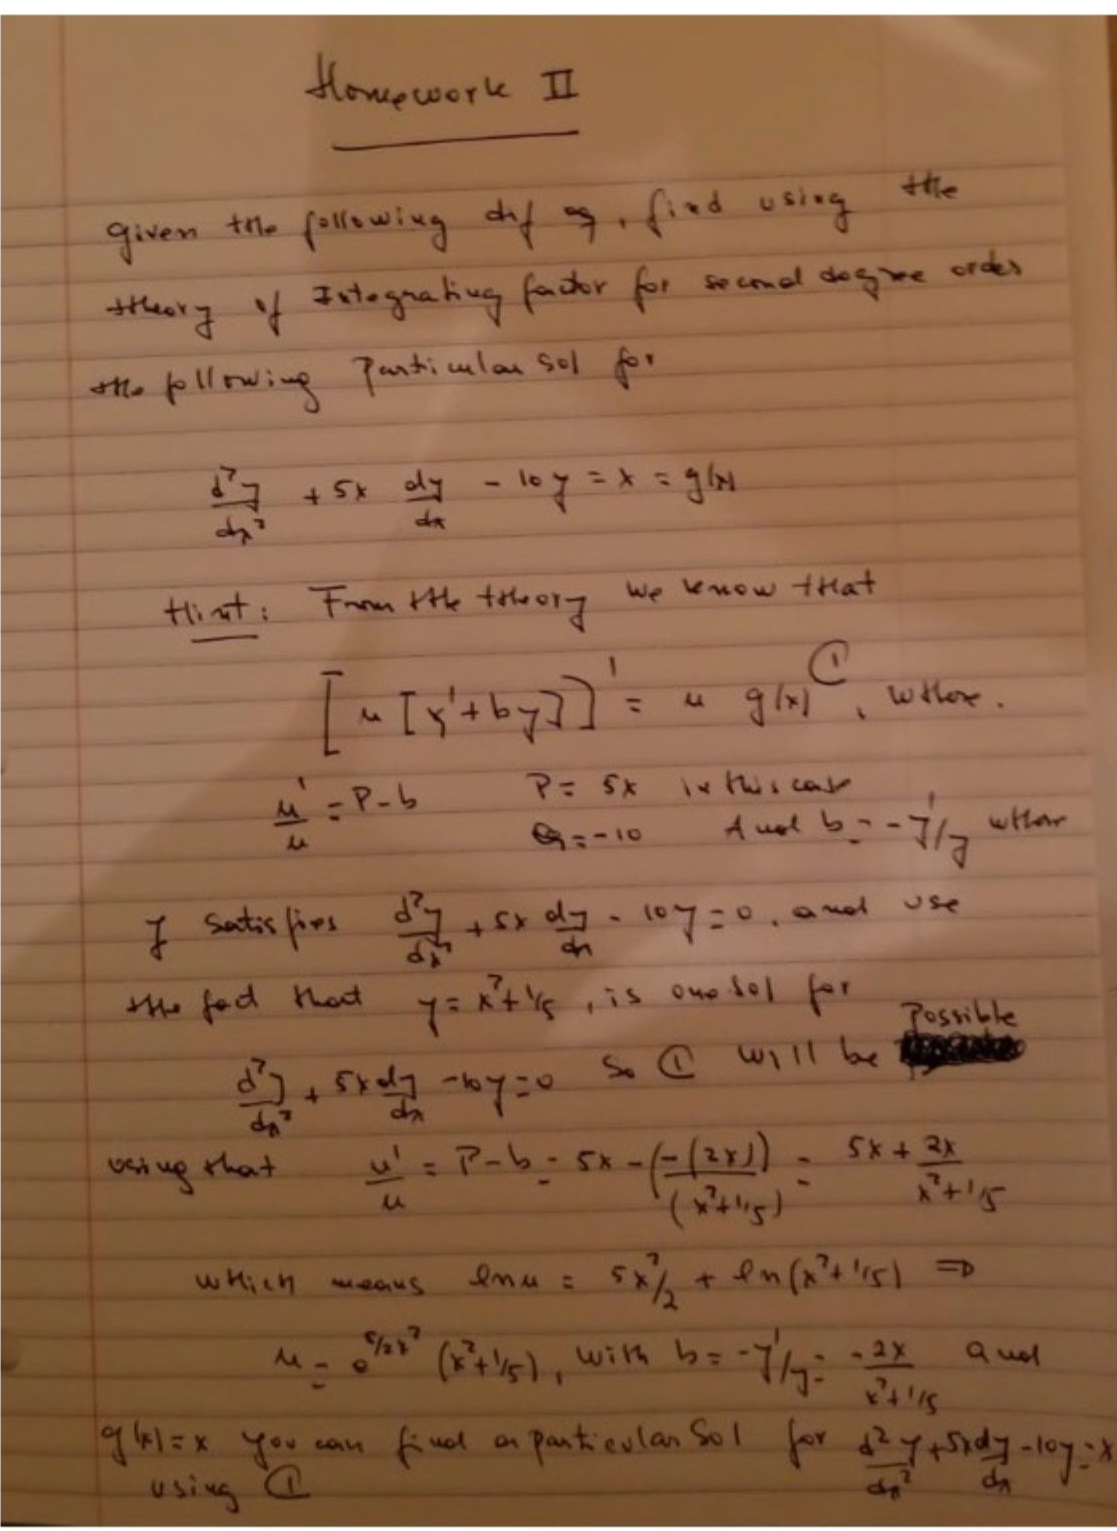 Homework II
given the following dif eq, find using the
theory of Integrating factor for second degree order
the following Particular sol for
d²y/dx² + 5x dy/dx - 10y = x = g(x)
Hint: From the theory we know that
[μ [y' + by]]' = μ g(x) ①, where.
μ'/μ = P-b P = 5x in this case
Q = -10 And b = -y'/y where
y satisfies d²y/dx² + 5x dy/dx - 10y = 0, and use
the fact that y = x² + 1/5, is one sol for
Possible
d²y/dx² + 5x dy/dx - 10y = 0 So ① will be
using that μ'/μ = P-b = 5x - (-(2x))/(x²+1/5) = 5x + 2x/(x²+1/5)
which means ln μ = 5x²/2 + ln(x²+1/5) ⇒
μ = e^(5/2x²) (x²+1/5), with b = -y'/y = -2x/(x²+1/5) and
g(x) = x you can find a particular sol for d²y/dx² + 5x dy/dx - 10y = x
using ①